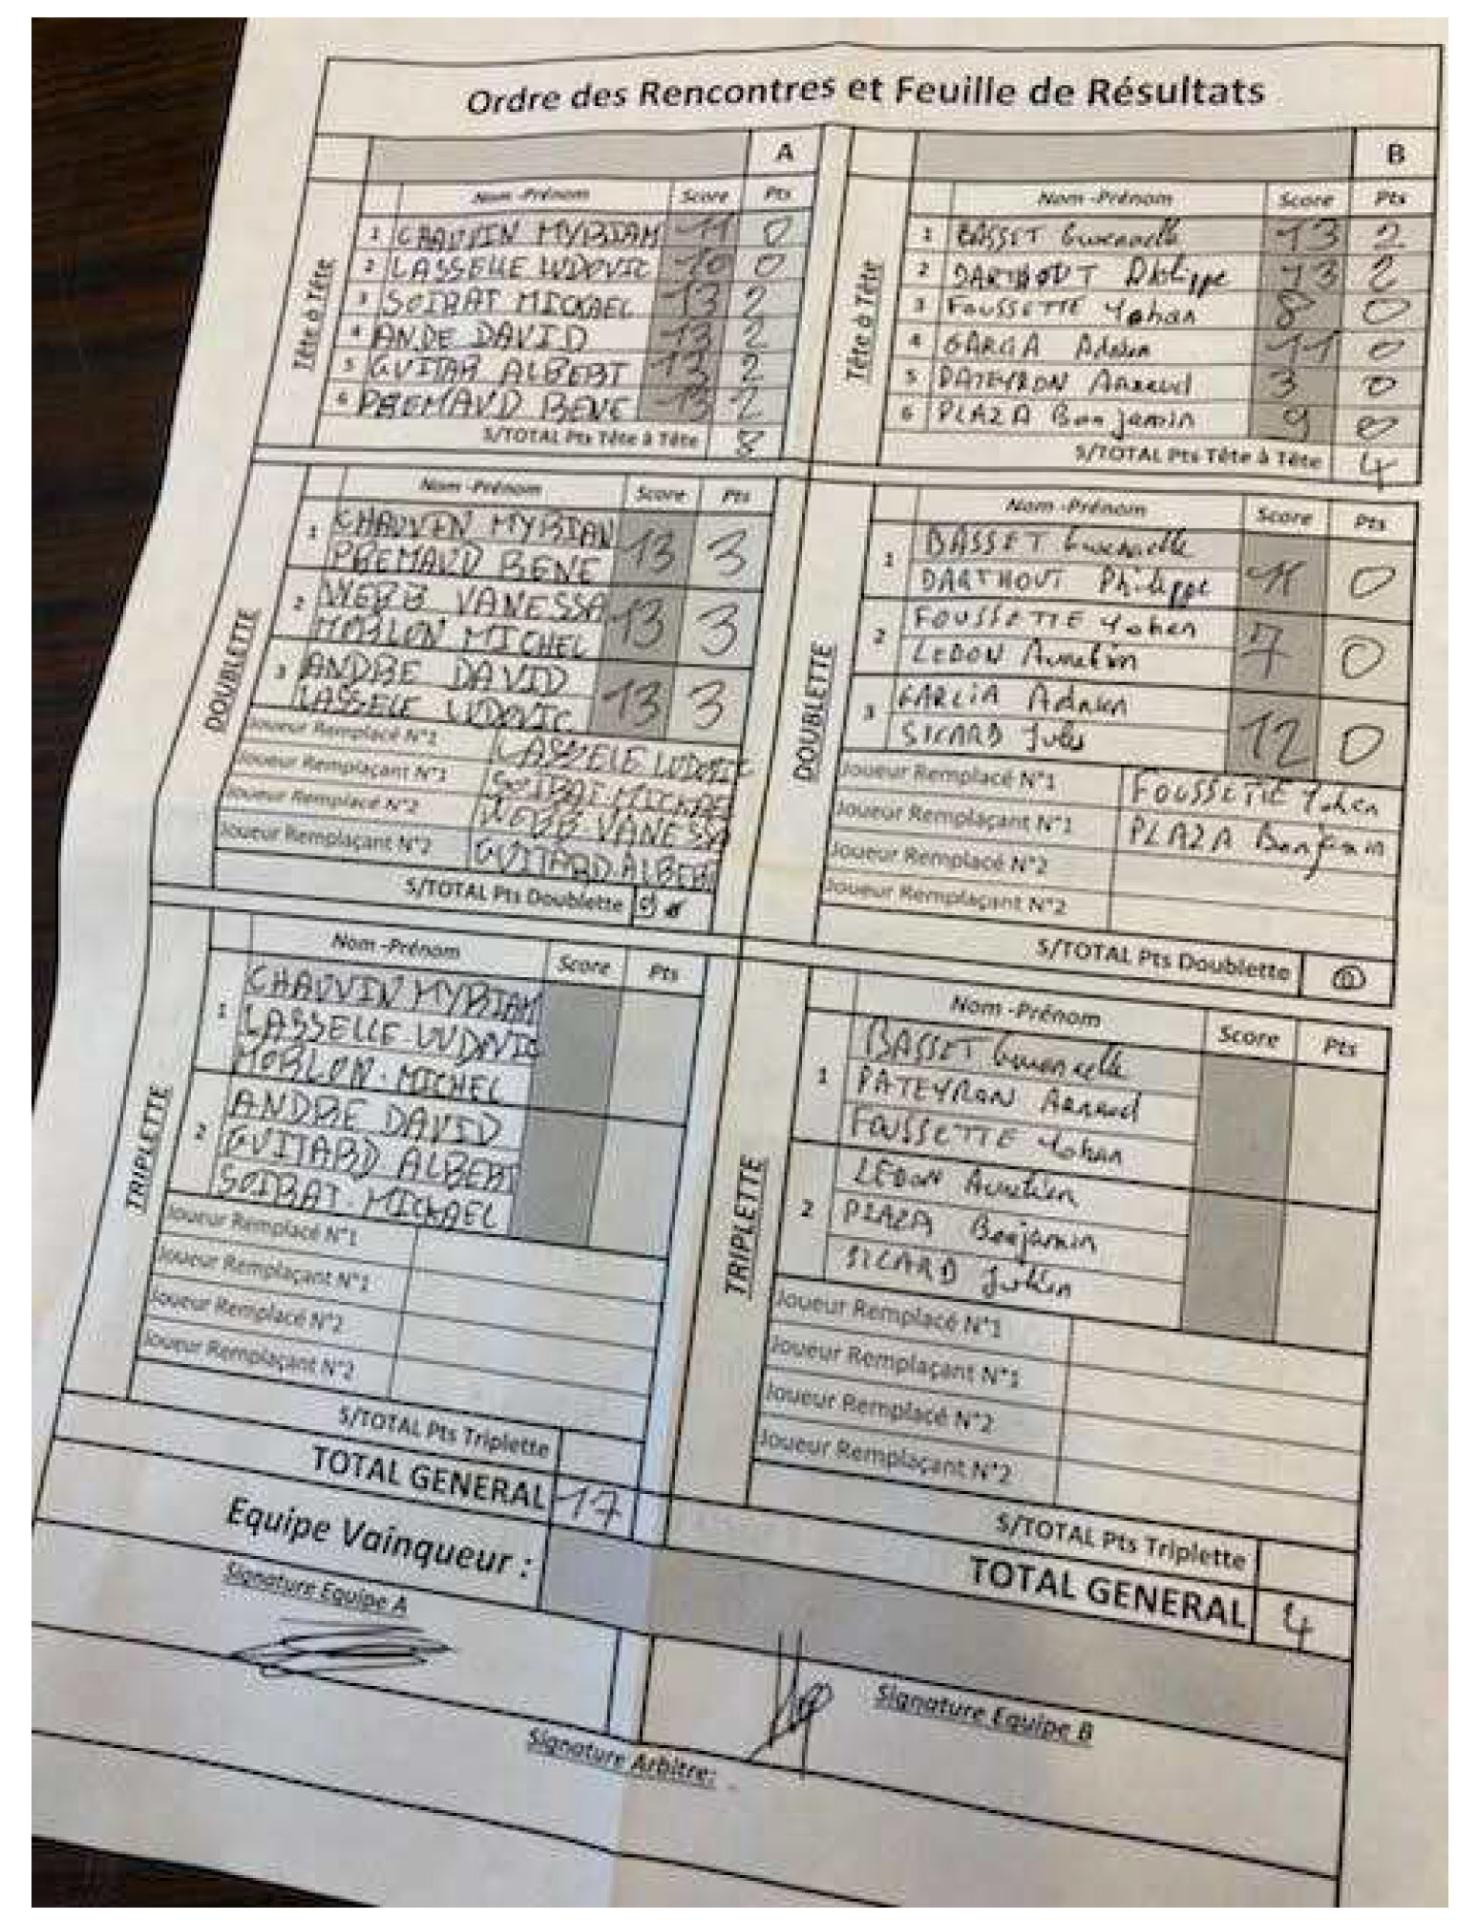 Ordre des Rencontres et Feuille de Résultats
A
Tête à Tête
Nom -Prénom Score Pts
1 CHAUVIN MYRIAM 11 0
2 LASSELLE LUDOVIC 10 0
3 SOIRAT MICKAEL 13 2
4 ANDE DAVID 13 2
5 GUITAR ALBERT 13 2
6 PREMAUD RENE 13 2
S/TOTAL Pts Tête à Tête 8
B
Tête à Tête
Nom -Prénom Score Pts
1 BASSET Gwenaelle 13 2
2 DARTHOUT Philippe 13 2
3 FOUSSETTE Yohan 8 0
4 GARCIA Adrien 11 0
5 PATEYRON Arnaud 3 0
6 PLAZA Benjamin 9 0
S/TOTAL Pts Tête à Tête 4
DOUBLETTE
Nom -Prénom Score Pts
1 CHAUVIN MYRIAN
PREMAUD RENE 13 3
2 WEBB VANESSA
MORLON MICHEL 13 3
3 ANDRE DAVID
LASSELE LUDOVIC 13 3
Joueur Remplacé N°1 LASSELE LUDOVIC
Joueur Remplaçant N°1 SOIRAT MICKAEL
Joueur Remplacé N°2 WEBB VANESSA
Joueur Remplaçant N°2 GUITARD ALBERT
S/TOTAL Pts Doublette 9
DOUBLETTE
Nom -Prénom Score Pts
1 BASSET Gwenaelle
DARTHOUT Philippe 11 0
2 FOUSSETTE Yohan
LEDON Aurelien 7 0
3 GARCIA Adrien
SICARD Jules 12 0
Joueur Remplacé N°1 FOUSSETTE Yohan
Joueur Remplaçant N°1 PLAZA Benjamin
Joueur Remplacé N°2
Joueur Remplaçant N°2
S/TOTAL Pts Doublette 0
TRIPLETTE
Nom -Prénom Score Pts
1 CHAUVIN MYRIAM
LASSELLE LUDOVIC
MORLON MICHEL
2 ANDRE DAVID
GUITARD ALBERT
SOIRAT MICKAEL
Joueur Remplacé N°1
Joueur Remplaçant N°1
Joueur Remplacé N°2
Joueur Remplaçant N°2
S/TOTAL Pts Triplette
TOTAL GENERAL 17
TRIPLETTE
Nom -Prénom Score Pts
1 BASSET Gwenaelle
PATEYRON Arnaud
FOUSSETTE Yohan
2 LEDON Aurelien
PLAZA Benjamin
SICARD Julien
Joueur Remplacé N°1
Joueur Remplaçant N°1
Joueur Remplacé N°2
Joueur Remplaçant N°2
S/TOTAL Pts Triplette
TOTAL GENERAL 4
Equipe Vainqueur :
Signature Equipe A
Signature Equipe B
Signature Arbitre: